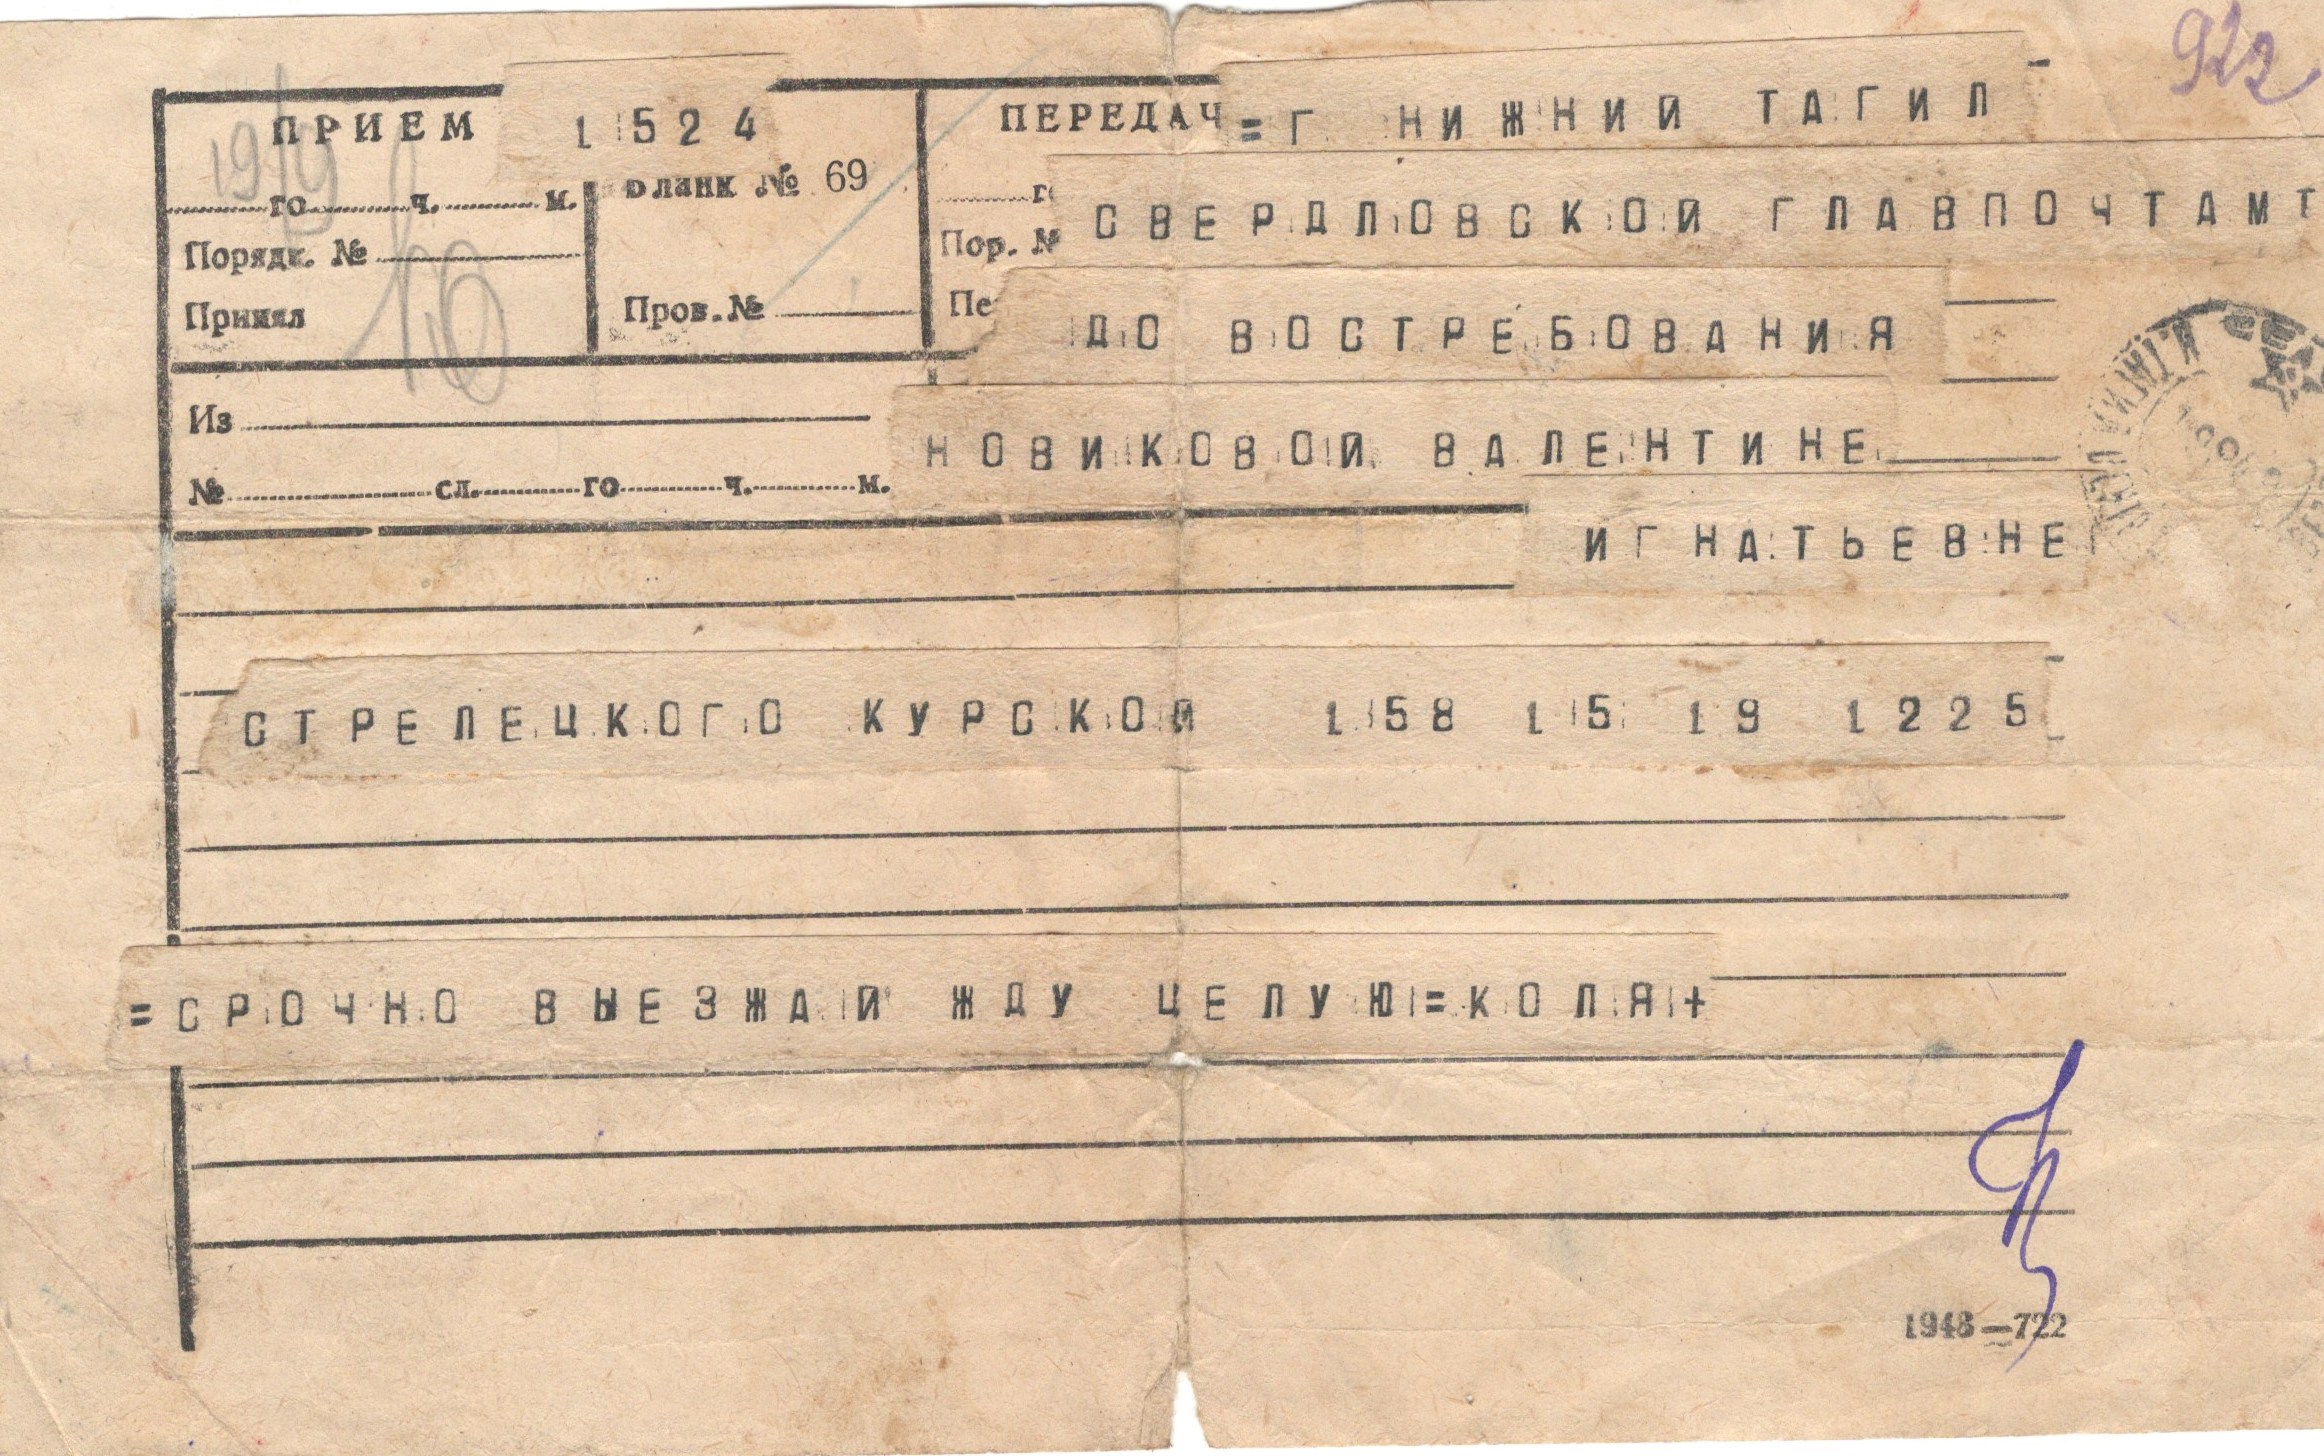 922
= Г НИЖНИЙ ТАГИЛ
ПРИЕМ 1524 ПЕРЕДАЧ
Бланк № 69
го ч. м.
СВЕРДЛОВСКОЙ ГЛАВПОЧТАМТ
Порядк. № Пор. №
Принял Пров. № Пе
ДО ВОСТРЕБОВАНИЯ
Из
НОВИКОВОЙ ВАЛЕНТИНЕ
№ сл. го ч. м.
ИГНАТЬЕВНЕ
СТРЕЛЕЦКОГО КУРСКОЙ 158 15 19 1225
=СРОЧНО ВЫЕЗЖАЙ ЖДУ ЦЕЛУЮ=КОЛЯ+
1948—722